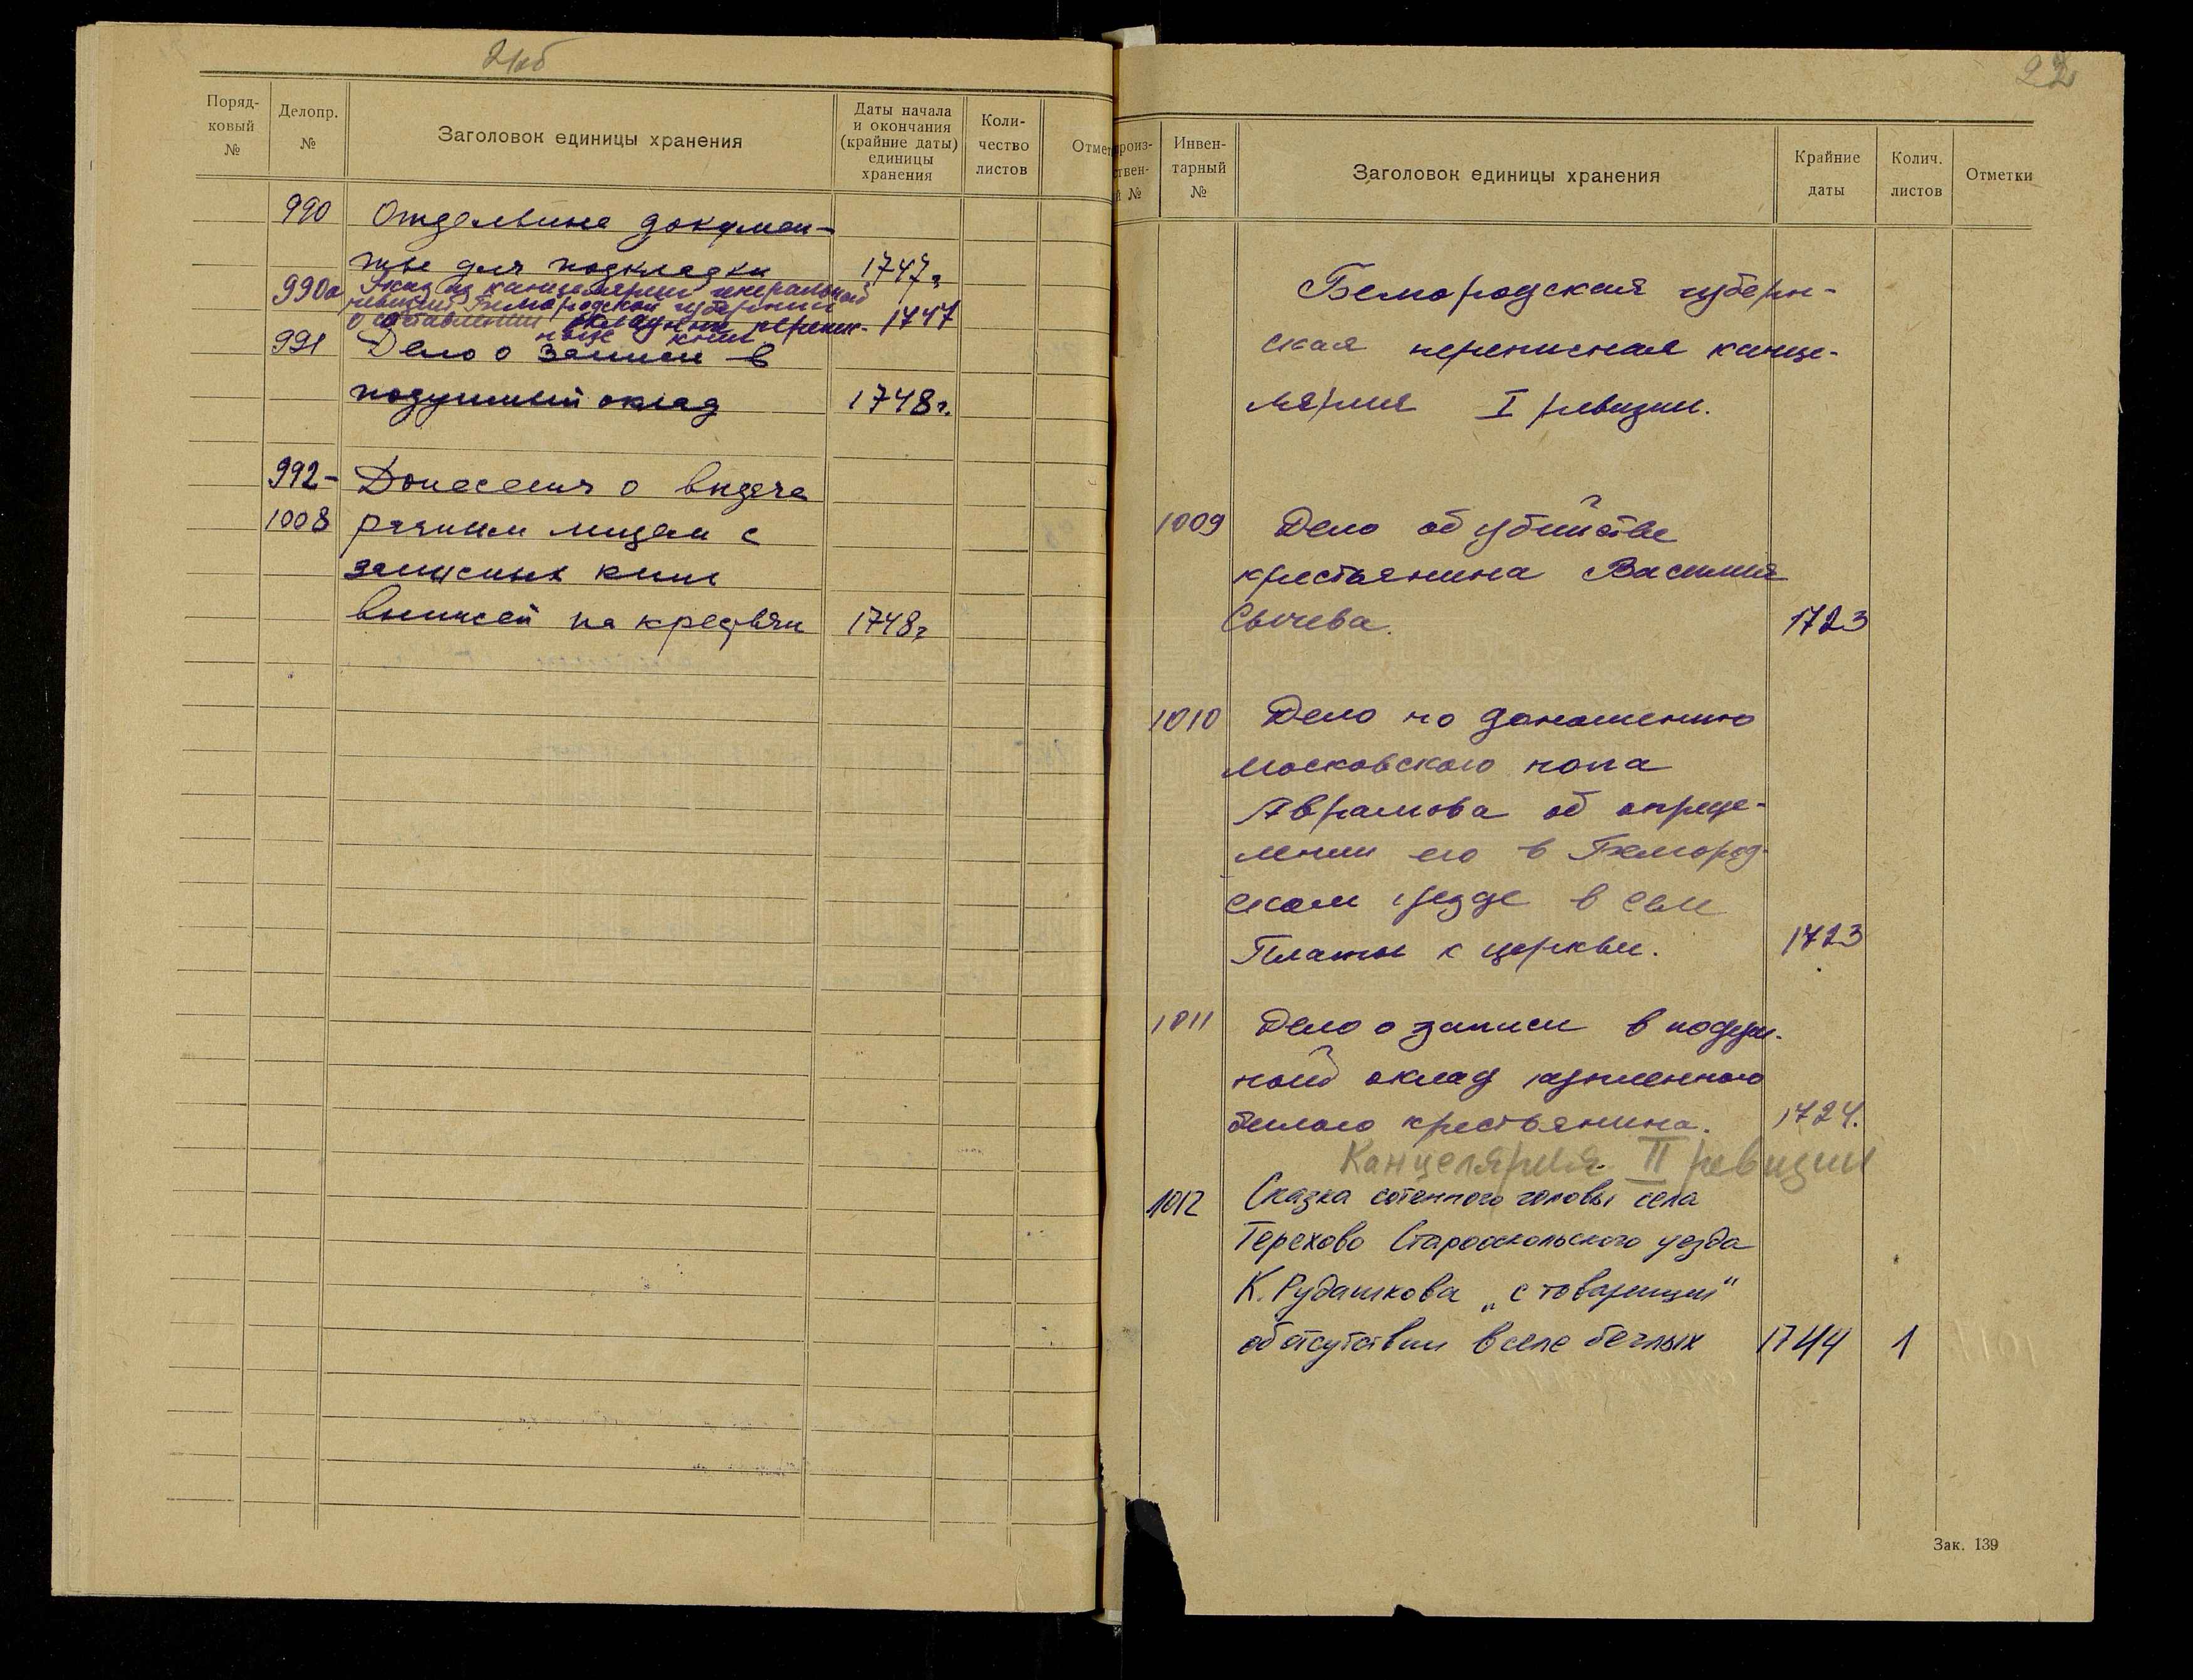 21об
Поряд-
ковый
№
Делопр.
№
Заголовок единицы хранения
Даты начала
и окончания
(крайние даты)
единицы
хранения
Коли-
чество
листов
Отмет
990 Отдельные докумен-
ты для подкладки 1747г
990а Указ из канцелярии генеральной
ревизии Белгородской губернии
о составлении окладных перепис- 1747
ных книг
991 Дело о записи в
подушный оклад 1748г.
992- Донесения о выдаче
1008 разным лицам с
записных книг
выписей на крестьян 1748г
22
произ-
ствен-
й №
Инвен-
тарный
№
Заголовок единицы хранения
Крайние
даты
Колич.
листов
Отметки
Белгородская губерн-
ская переписная канце-
лярия I ревизии.
1009 Дело об убийстве
крестьянина Василия
Сычева. 1723
1010 Дело по доношению
московского попа
Аврамова об опреде-
лении его в Белгород-
ском уезде в селе
Платы к церкви. 1723
1011 Дело о записи в подуш-
ной оклад
беглого крестьянина. 1724.
Канцелярия II ревизии
1012 Сказка сотенного головы села
Терехово Старооскольского уезда
К. Рудашкова „с товарищи"
об отсутствии в селе беглых 1744 1
Зак. 139